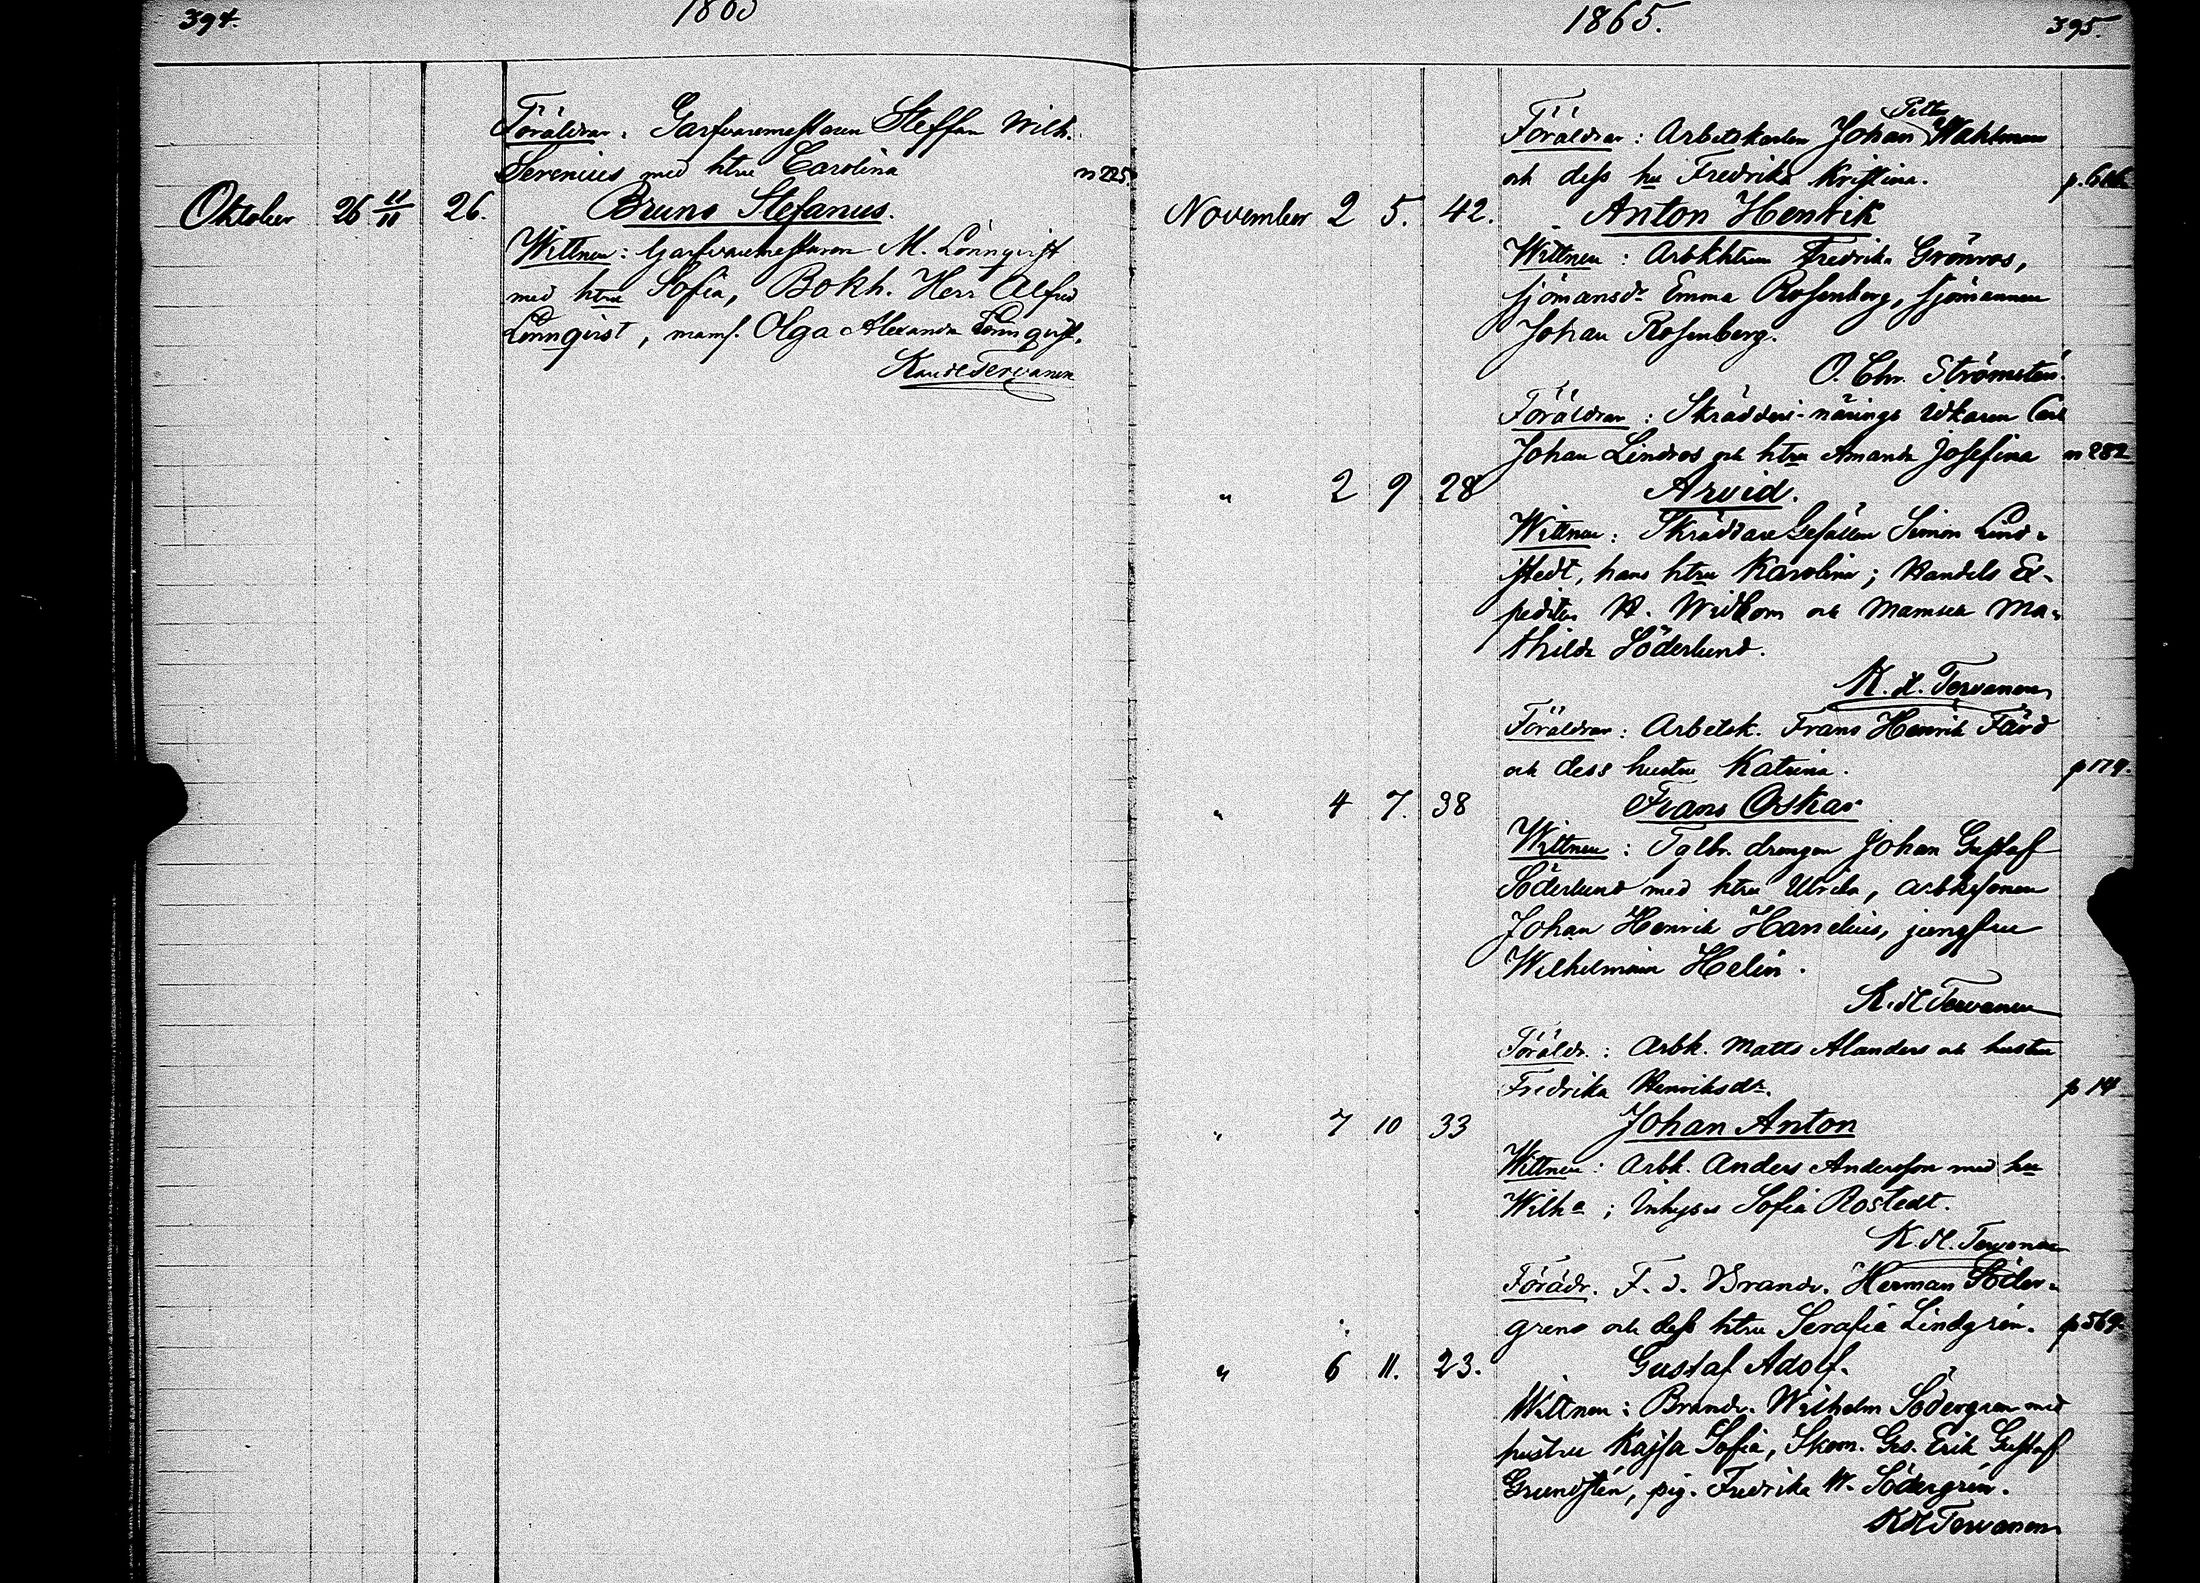 394. 1865
Föräldrar: Garfvaremästaren Steffan Wilh.
Serenius med htru Carolina n 225.
Oktober 26 11/11 26. Bruno Stefanus.
Wittnen: Garfvaremästaren M. Lönnqvist
med htru Sofia, Bokh. Herr Alfred
Lönnqvist, mams. Olga Alexandra Lönnqvist.
K Tervanen
1865. 395.
Föräldrar: Arbetskarlen Johan Petter Wahlman
och dess hu Fredrika Kristina.
November 2 5. 42. Anton Henrik
Wittnen: Arbkhtrun Fredrika Grönros,
sjömansdr Emma Rosenberg, sjömannen
Johan Rosenberg.
O. Chr. Strömsten.
Föräldrar: Skrädderi-närings idkaren Carl
Johan Lindros och htru Amanda Josefina n 282
" 2 9 28 Arvid.
Wittnen: Skräddare Gesällen Simon Lind-
stedt, hans htru Karolina; Handels Ex-
peditor W. Widbom och Mamsell Ma-
thilda Söderlund.
K. H. Tervanen
Föräldrar: Arbetsk. Frans Henrik Färd
och dess hustru Katrina. p 179.
" 4 7. 38 Frans Oskar
Wittnen: Tglbr. drengen Johan Gustaf
Söderlund med htru Ulrika, arbksonen
Johan Henrik Hanelius, jungfru
Wilhelmina Helin.
K. H Tervanen
Föräldr.: Arbk. Matts Alanders och hustru
Fredrika Henriksdr. p 14
" 7 10 33 Johan Anton
Wittnen: Arbk. Anders Andersson med hu
Wilha; Inhyses Sofia Rostedt.
K. H. Tervanen
Förädr. F. d. Brandv. Herman Söder-
gren och dess htru Serafia Lindgrén. p 569.
" 6 11. 23. Gustaf Adolf.
Wittnen: Brandv. Wilhelm Södergren med
hustru Kajsa Sofia, Skom. Ges. Erik Gustaf
Grundstén, pig. Fredrika W. Södergrén.
K H Tervanen